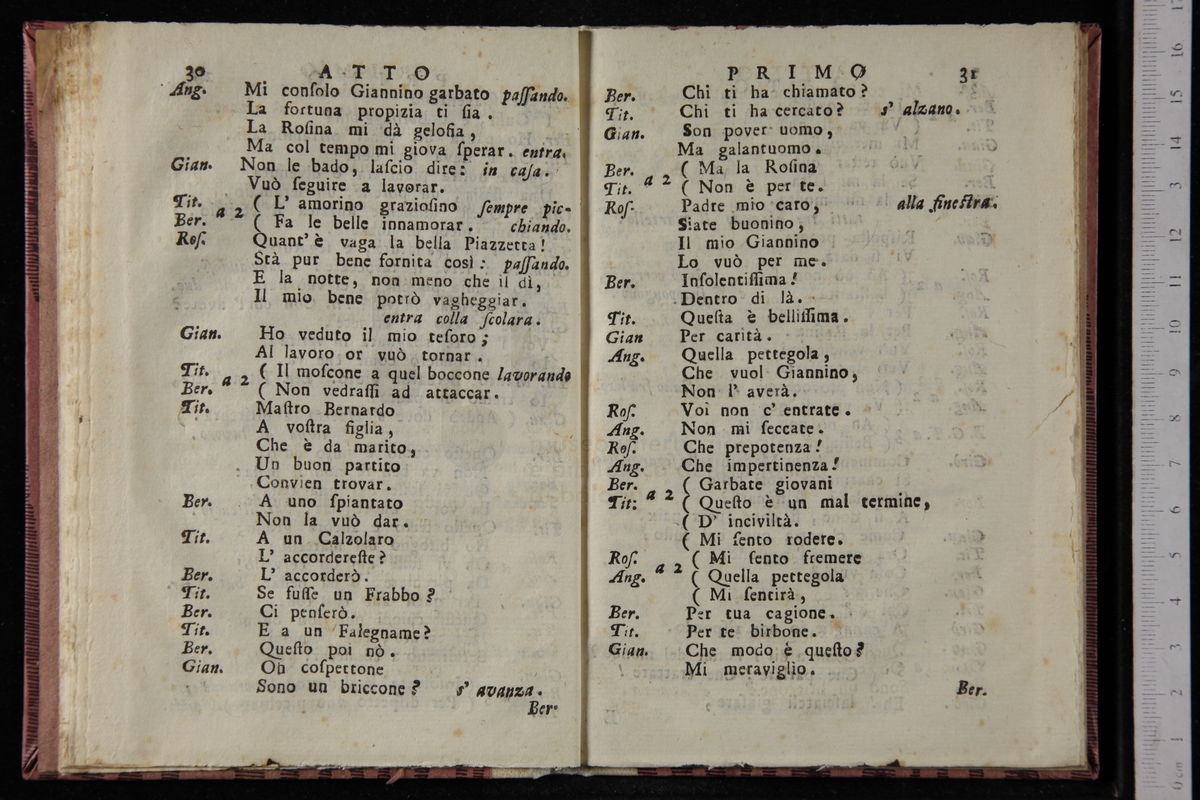 30 ATTO
Ang. Mi conſolo Giannino garbato paſſando.
La fortuna propizia ti ſia.
La Roſina mi dà geloſia,
Ma col tempo mi giova ſperar. entra.
Gian. Non le bado, laſcio dire: in caſa.
Vuò ſeguire a lavorar.
Tit. a 2 ( L' amorino grazioſino ſempre pic-
Ber. ( Fa le belle innamorar. chiando.
Roſ. Quant' è vaga la bella Piazzetta!
Stà pur bene fornita così: paſſando.
E la notte, non meno che il dì,
Il mio bene potrò vagheggiar.
entra colla ſcolara.
Gian. Ho veduto il mio teſoro;
Al lavoro or vuò tornar.
Tit. a 2 ( Il moſcone a quel boccone lavorando
Ber. ( Non vedraſſi ad attaccar.
Tit. Maſtro Bernardo
A voſtra figlia,
Che è da marito,
Un buon partito
Convien trovar.
Ber. A uno ſpiantato
Non la vuò dar.
Tit. A un Calzolaro
L' accordereſte?
Ber. L' accorderò.
Tit. Se fuſſe un Frabbo?
Ber. Ci penſerò.
Tit. E a un Falegname?
Ber. Queſto poi nò.
Gian. Oh coſpettone
Sono un briccone? s' avanza.
Ber.
PRIMO 31
Ber. Chi ti ha chiamato?
Tit. Chi ti ha cercato? s' alzano.
Gian. Son pover uomo,
Ma galantuomo.
Ber. a 2 ( Ma la Roſina
Tit. ( Non è per te.
Roſ. Padre mio caro, alla fineſtra.
Siate buonino,
Il mio Giannino
Lo vuò per me.
Ber. Inſolentiſſima!
Dentro di là.
Tit. Queſta è belliſſima.
Gian Per carità.
Ang. Quella pettegola,
Che vuol Giannino,
Non l' averà.
Roſ. Voi non c' entrate.
Ang. Non mi ſeccate.
Roſ. Che prepotenza!
Ang. Che impertinenza!
Ber. ( Garbate giovani
Tit: a 2 ( Queſto è un mal termine,
( D' inciviltà.
( Mi ſento rodere.
Roſ. ( Mi ſento fremere
Ang. a 2 ( Quella pettegola
( Mi ſentirà,
Ber. Per tua cagione.
Tit. Per te birbone.
Gian. Che modo è queſto?
Mi meraviglio.
Ber.